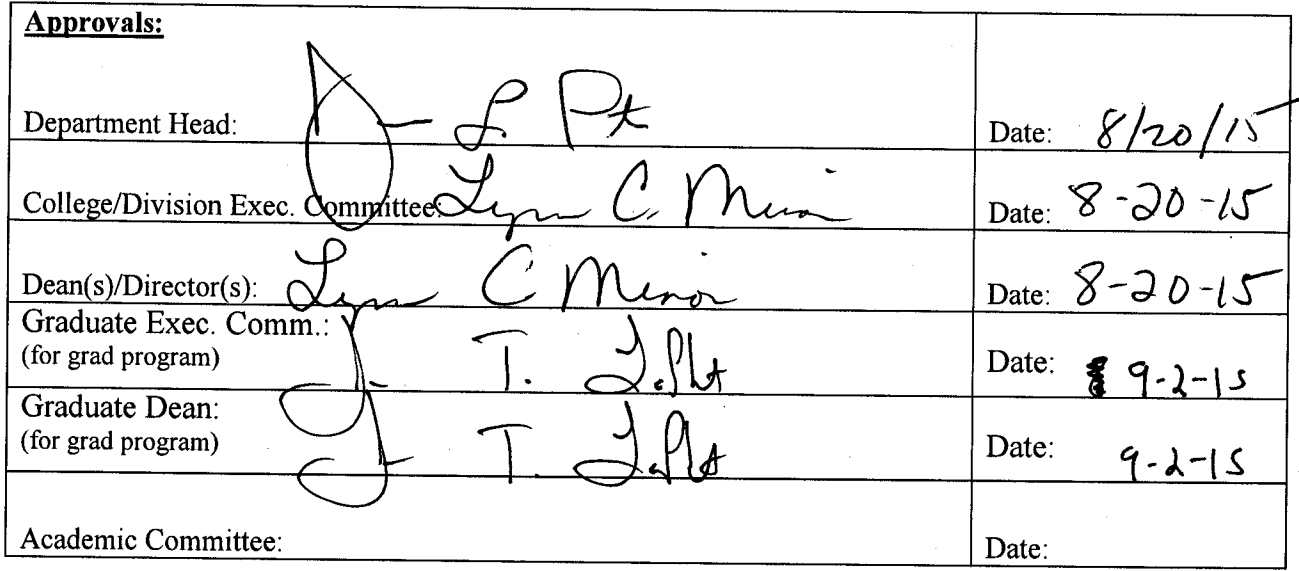 Approvals:
Department Head: Date: 8/20/15
College/Division Exec. Committee: Lynn C. Minor Date: 8-20-15
Dean(s)/Director(s): Lynn C Minor Date: 8-20-15
Graduate Exec. Comm.: T.
(for grad program) Date: 9-2-15
Graduate Dean: T.
(for grad program) Date: 9-2-15
Academic Committee: Date: